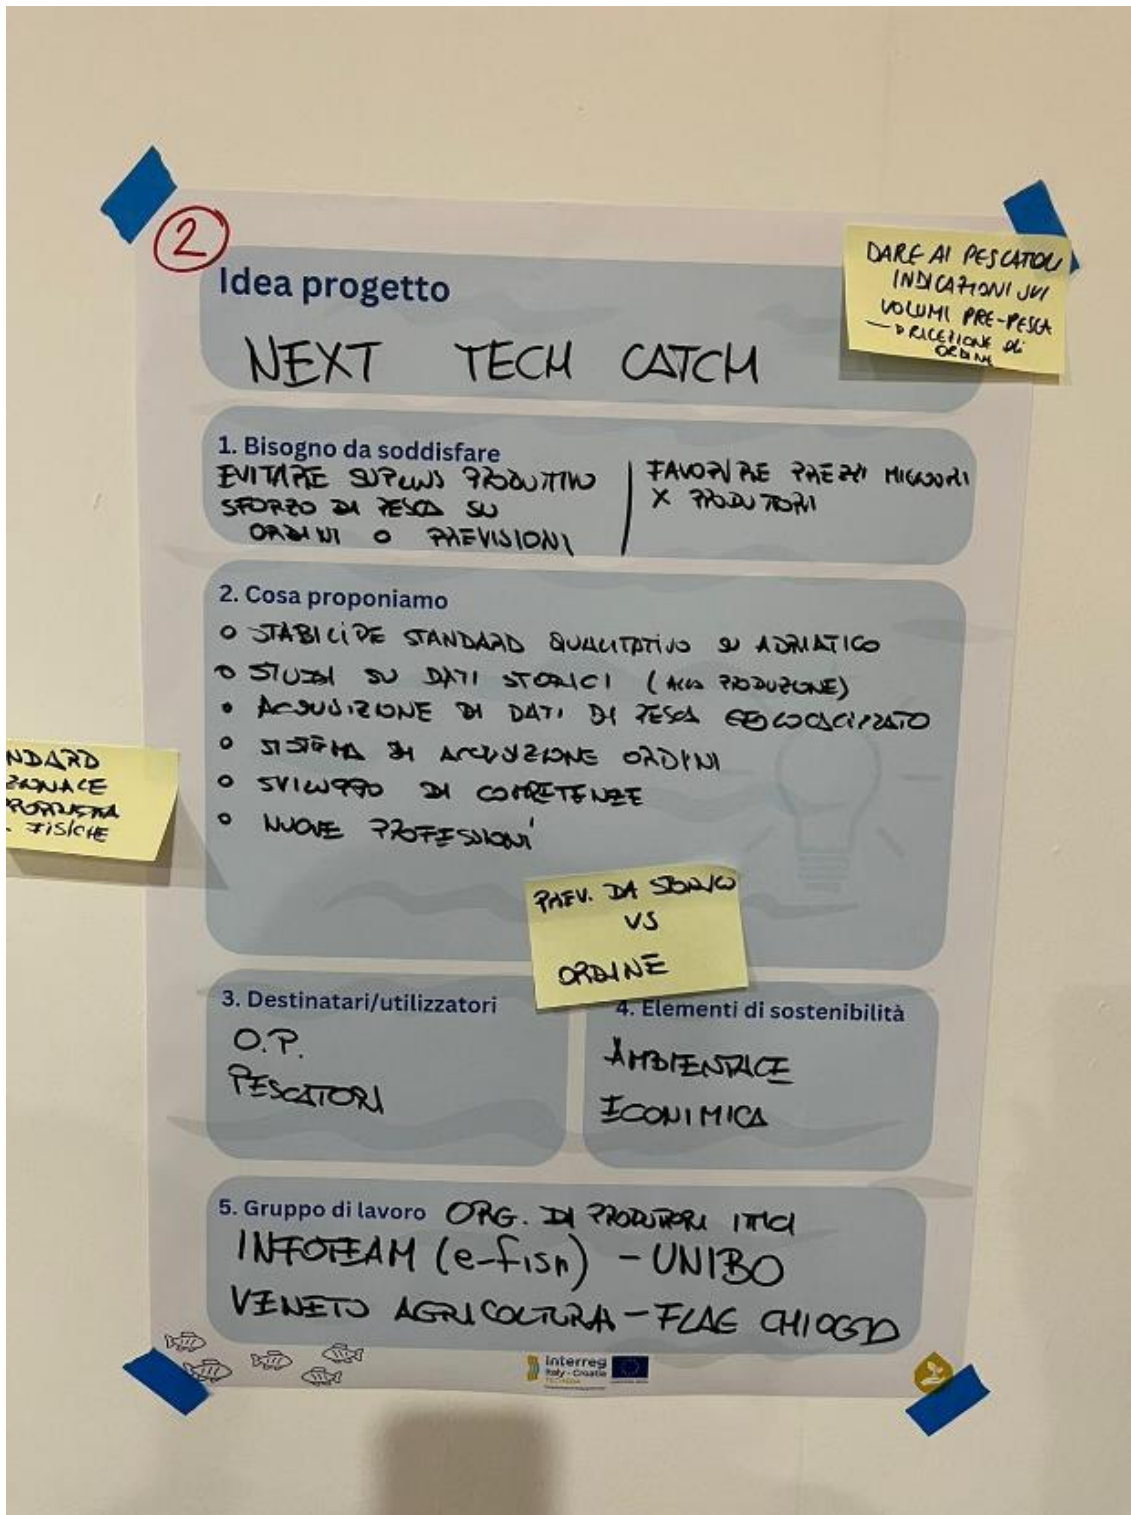 2
Idea progetto
NEXT TECH CATCH
DARE AI PESCATORI
INDICAZIONI SUI
VOLUMI PRE-PESCA
RICEZIONE di
ORDINI
1. Bisogno da soddisfare
EVITARE SURPLUS PRODUTTIVO
SFORZO DI PESCA SU
ORDINI O PREVISIONI
FAVORIRE PREZZI MIGLIORI
X PRODUTTORI
2. Cosa proponiamo
STABILIRE STANDARD QUALITATIVO SU ADRIATICO
STUDI SU DATI STORICI ( PRODUZIONE)
ACQUISIZIONE DI DATI DI PESCA GEOLOCALIZZATO
SISTEMA DI ACQUISIZIONE ORDINI
SVILUPPO DI COMPETENZE
NUOVE PROFESSIONI
NDARD
FISICHE
PREV. DA STORICO
VS
ORDINE
3. Destinatari/utilizzatori
O.P.
PESCATORI
4. Elementi di sostenibilità
AMBIENTALE
ECONIMICA
5. Gruppo di lavoro ORG. DI PRODUTTORI ITTICI
INFOTEAM (e-fish) - UNIBO
VENETO AGRICOLTURA - FLAG CHIOGGIA
Interreg
Italy - Croatia